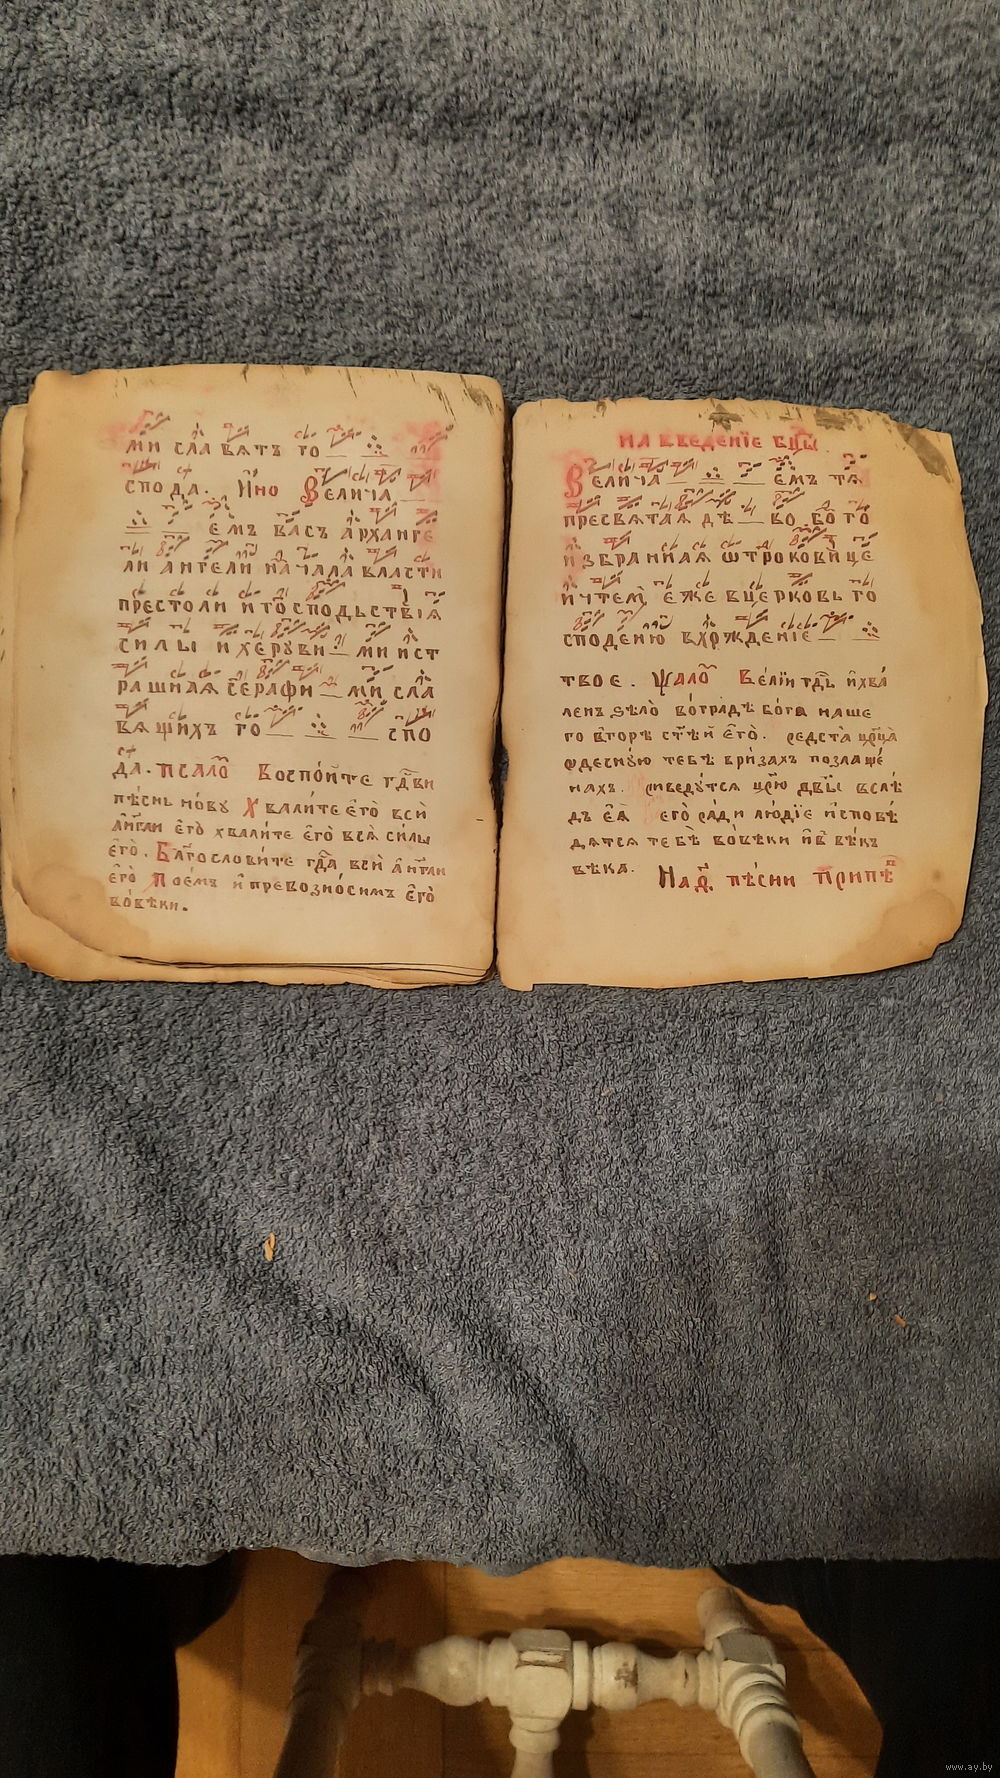 ми сла вятъ го
спода. Ино Велича
емъ васъ арханге
ли ангели начала власти
престоли и господьствїя
силы и херуви ми и ст
рашная серафи ми сла
вящихъ го спо
да. псало Воспойте гдви
пѣснь нову Хвалите его вси
аггли его хвалите его вся силы
его. Благословите гда вси аггли
его Поемъ и превозносимъ его
вовѣки.
на введенїе бцы.
Велича емъ тя
пресвятая дѣ во бо го
избранная ѡтроковице
и чтемъ еже вцерковь го
споденю вхожденїе
твое. Ѱало Велїи гдь и хва
ленъ ѕѣло во градѣ бога наше
го вгорѣ стѣй его. редста црца
одесную тебе вризахъ позлаще
нахъ. риведутся црю двы вслѣ
дъ ея его ради людїе исповѣ
дятся тебѣ вовѣки и в вѣкъ
вѣка. Над пѣсни припѣ
www.ay.by